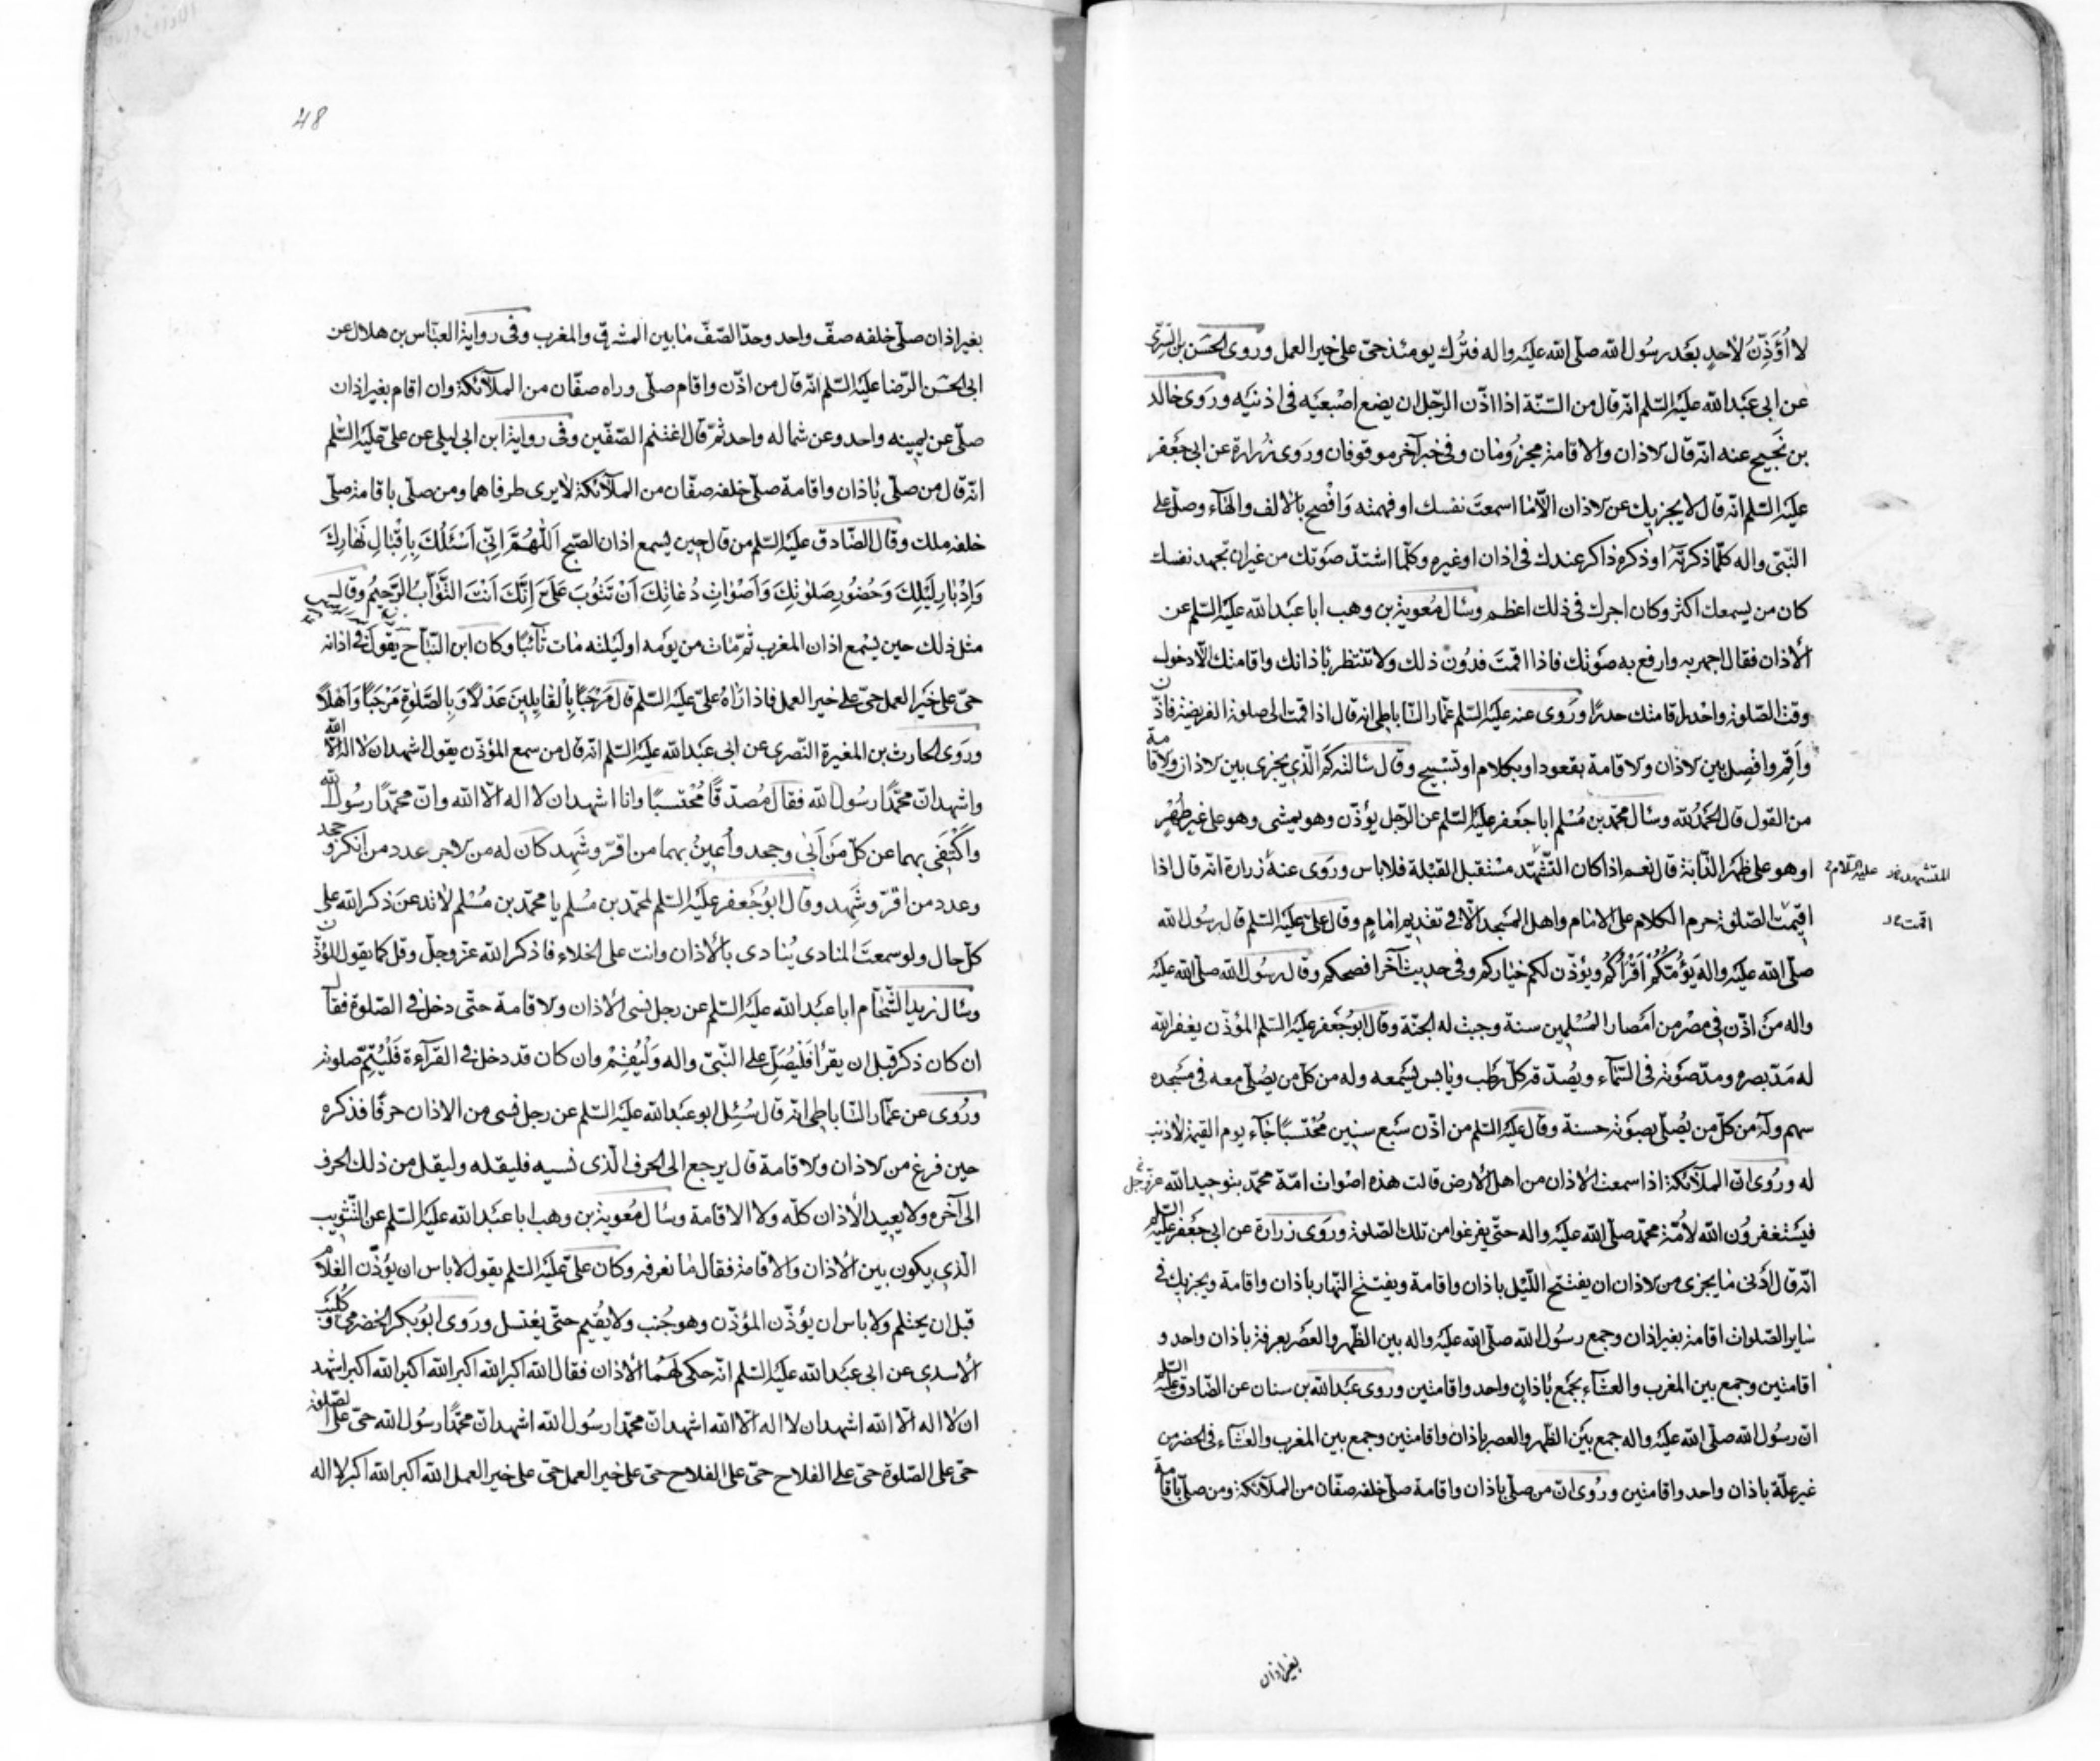 لا اُؤَذِّنُ لأحدٍ بعَد رسُول الله صلّى الله عليَه واله فتُرك يومئذ حىّ على خير العمل وروى الحسَن بن السّرىّ
عن ابى عبَد الله عليَه السّلم انّه قال من السّنّة اذا اذّن الرّجل ان يضع اصْبعيَه فى اذنيَه وروَى خالد
بن نَجيح عنه انّه قال الاذان والاقامة مجزومان وفى خبر آخر موقوفان وروَى زُرارة عن ابى جعَفر
عليَه السّلم انّه قال لا يجزيك عن الاذان الاّ ما اسمعتَ نفسك او فهمته وَافْصح بالالف والهاء وصلّ على
النّبىّ واله كلّما ذكرته او ذكره ذاكر عندك فى اذان او غيره وكلّما اشتدّ صوَتك من غير ان تجهد نفسك
كان من يسمعك اكثر وكان اجرك فى ذلك اعظم وسَال مُعوية بن وهب ابا عبَد الله عليَه السّلم عن
الأذان فقال اجهر به وارفع به صوَتك فاذا اقمتَ فدُون ذلك ولا تنتظر باذانك واقامتك الاّ دخول
وقت الصّلوة واحْدر اقامتك حدرًا وروَى عنه عليَه السّلم عمّار السّاباطى انه قال اذا قمت الى صلوة الفريضة فاذّن
وأَقِم وافْصِل بين الاذان والاقامة بقعود او بكلام او تسْبيح وقال سَالته كم الّذى يجزى بين الاذان والاقامة
من القول قال الحَمدُ لله وسَال محمّد بن مُسْلم ابا جعَفر عليَه السّلم عن الرّجل يؤذّن وهو يمشى وهو على غير طُهْرٍ
او هو على ظهَر الدّابّة قال نعم اذا كان التّشهّد مسْتقبل القبْلة فلا باس وروَى عنهُ زرارة انّه قال اذا
المتشهد عليه السّلام
اقيمَت الصّلوة حرم الكلام على الامام واهل المسَجد الاّ فى تقديم امَامٍ وقال علىّ عليَه السّلم قال رسُول الله
اقمت
صلّى الله عليَه واله يَؤُمُّكُمْ اَقْرَأُكُمْ ويؤذّن لكم خياركم وفى حديث آخر افصحكم وقال رسُول الله صلّى الله عليَه
واله مَن اذّن فى مصْر من امَصار المُسْلمين سنة وجبت له الجنّة وقال ابوُ جُعَفر عليَه السّلم المؤذّن يغفر الله
له مَدّ بصره ومدّ صوَته فى السّماَء ويصُدّقه كلّ رطَب ويَابس يسَمعه وله من كلّ من يصُلّى معه فى مسَجده
سهم وله من كلّ من يُصلّى بصوَته حسنة وقال عليَه السّلم من اذّن سَبع سنين مُحْتسَبًا جَاء يوم القيمة لا ذنب
له ورُوى انّ الملاَئكة اذا سمعت الاذان من اهل الأرض قالت هذه اصْوات امّة محمّد بتوحيد الله عزّ وجل
فيَسْتغفرُون الله لأمّة محمّد صلّى الله عليَه واله حتّى يفرغوا من تلك الصّلوة وروَى زرارة عن ابى جعَفر عليَه السّلم
انّه قال ادْنى مَا يجزى من الاذان ان يفتتح اللّيْل باذان واقامة ويفتتح النّهار باذان واقامة ويجزيك فى
سَاير الصّلوات اقامة بغير اذان وجمع رسُول الله صلّى الله عليَه واله بين الظّهر والعصَر بعرفة باذان واحد و
اقامتين وجمع بين المغرب والعشَاء بجَمع بَاذانٍ واحد واقامتين وروى عبَد الله بن سنان عن الصّادق عليَه السّلم
انّ رسُول الله صلّى الله عليَه واله جمع بيَن الظّهر والعصر باذان واقامتين وجمع بين المغرب والعشَاء فى الحضر من
غير علّة باذان واحد واقامتين ورُوى انّ من صلّى باذان واقامة صلّى خلفه صفّان من الملاَئكة ومن صلّى باقامة
بغير اذان
48
بغير اذان صلّى خلفه صفّ واحد وحدّ الصّفّ مَا بين المشرق والمغرب وفى رواية العبّاس بن هلال عن
ابى الحسَن الرّضا عليَه السّلم انّه قال من اذّن واقام صلّى وراه صفّان من الملاَئكة وان اقام بغير اذان
صلّى عن يمينه واحد وعن شماله واحد ثمّ قال اغتنم الصّفّين وفى رواية ابن ابى ليلى عن علىّ عليَه السّلم
انّه قال من صلّى باذان واقامة صلّى خلفه صفّان من الملاَئكة لا يرى طرفاهما ومن صلّى باقامة صلّى
خلفه ملك وقال الصّادق عليَه السّلم من قال حين يسمع اذان الصّبح اَللّهُمَّ اِنّى اَسْئَلُكَ بِاِقْبَالِ نَهَارِكَ
وَاِدْبَارِ لَيْلِكَ وَحُضُورِ صَلَوٰتِكَ وَاَصْوَاتِ دُعَاتِكَ اَنْ تَتُوبَ عَلَىَّ اِنَّكَ اَنْتَ التَّوّابُ الرَّحيمُ وقال
مثل ذلك حين يسْمع اذان المغرب ثمّ مَات من يوَمه او ليَلته مات تَائبًا وكان ابن النّبّاح يقول فى اذانه
حىّ على خيَر العمل حىّ على خير العمل فاذا رَاهُ علىّ عليَه السّلم قال مَرْحَبًا بِالْقَايِلينَ عَدْلاً وَبِالصَّلوٰةِ مَرْحَبًا وَاَهْلاً
وروَى الحارث بن المغيرة النّصرى عن ابى عبَد الله عليَه السّلم انّه قال من سمع المؤذّن يقول اشهد ان لا اله الاّ الله
واشهد انّ محمّدًا رسُول الله فقال مُصدّقًا مُحْتسبًا وانا اشهد ان لا اله الاّ الله وانّ محمّدًا رسُول الله
واَكْتَفى بهما عن كلّ مَن اَبىٰ وجحد واُعينُ بهما من اقرّ وشَهِد كان له من الاجر عدد من انكر وجحد
وعدد من اقرّ وشَهِد وقال ابوُ جَعفر عليَه السّلم لمحمّد بن مسُلم يا محمّد بن مُسْلم لا تدعنَ ذكر الله على
كلّ حال ولو سمعتَ المنادى يُنادى بالأذان وانت على الخلاء فاذكر الله عزّ وجلّ وقل كما يقول المؤذّن
وسَال زيد الشّحّام ابا عبَد الله عليَه السّلم عن رجل نسى الأذان والاقامة حتّى دخل فى الصّلوة فقال
ان كان ذكر قبل ان يقرَأ فَليُصَلِّ على النّبىّ واله وَلْيُقِمْ وان كان قد دخل فى القرآءة فَلْيُتِمّ صلوته
ورُوى عن عمّار السّاباطى انّه قال سُئِل ابو عبَد الله عليَه السّلم عن رجل نسى من الاذان حرفًا فذكره
حين فرغ من الاذان والاقامة قال يرجع الى الحرف الّذى نسيه فليقله وليقل من ذلك الحرف
الى آخره ولا يعيد الأذان كلّه ولا الاقامة وسَال مُعوية بن وهب ابا عبَد الله عليَه السّلم عن التّثويب
الّذى يكون بين الأذان والاقامة فقال مَا نعرفه وكان علىّ عليَه السّلم يقول لا باس ان يؤذّن الغلام
قبل ان يحتلم ولا باس ان يؤذّن المؤذّن وهو جُنب ولا يُقيم حتّى يغتسل وروَى ابوُ بكر الحضرمى وكُليب
الأسدى عن ابى عبَد الله عليَه السّلم انّه حكى لهَما الأذان فقال الله اكبر الله اكبر الله اكبر الله اكبر اشهد
ان لا اله الاّ الله اشهد ان لا اله الاّ الله اشهد انّ محمّدًا رسُول الله اشهد انّ محمّدًا رسُول الله حىّ على الصّلوة
حىّ على الصّلوة حىّ على الفلاح حىّ على الفلاح حىّ على خير العمل حىّ على خير العمل الله اكبر الله اكبر لا اله